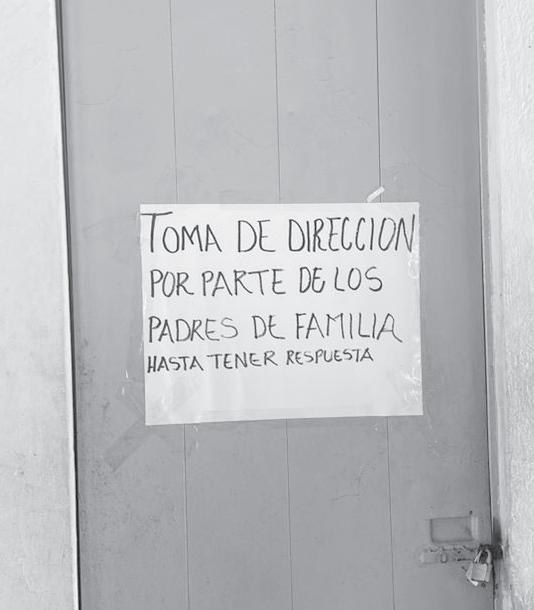 TOMA DE DIRECCION
POR PARTE DE LOS
PADRES DE FAMILIA
HASTA TENER RESPUESTA